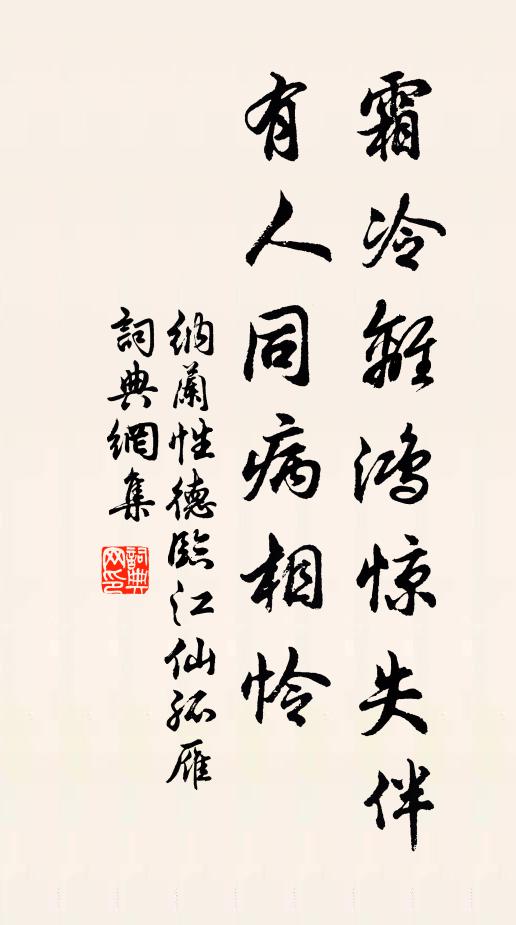 霜冷離鴻惊失伴
有人同病相怜
納蘭性德臨江仙孤雁
詞典網集
詞典网印